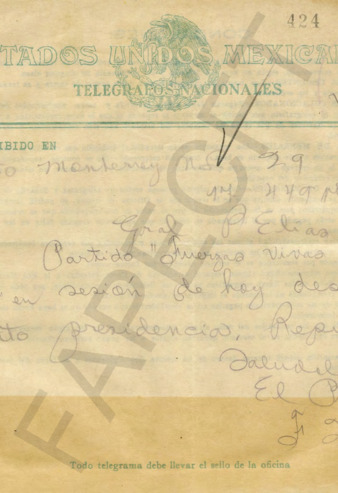 424
TADOS UNIDOS MEXICA
TELEGRAFOS-NACIONALES
IBIDO EN
Monterrey N.L. 29
17 449
Gral P. Elias
Partido "Fuerzas Vivas
en sesión de hoy
presidencia, Repu
El P
F
Todo telegrama debe llevar el sello de la oficina
FAPECFT